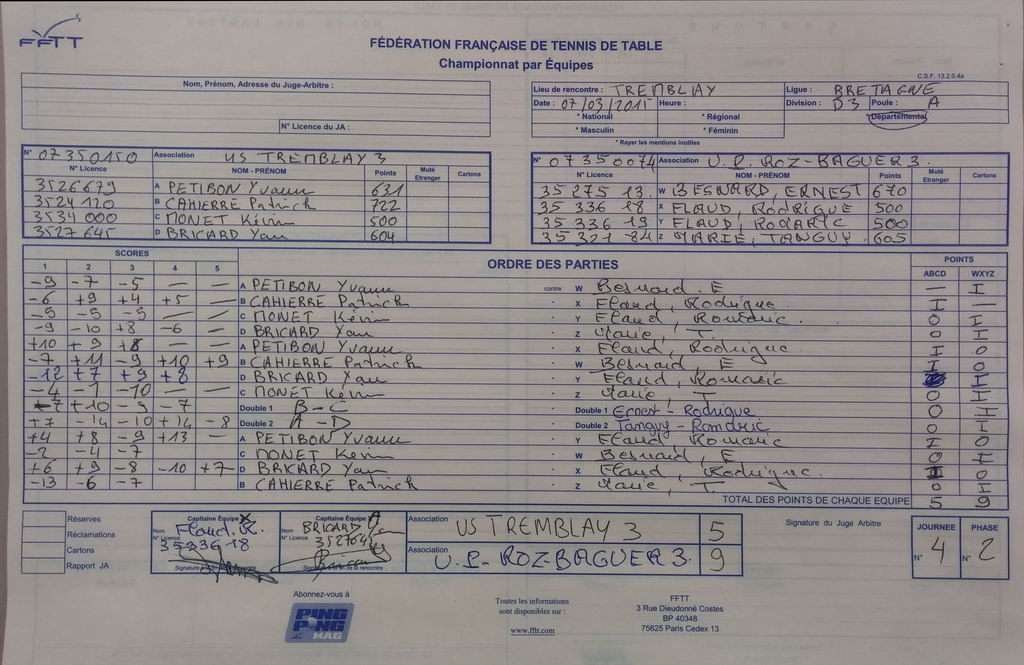 FFTT
FÉDÉRATION FRANÇAISE DE TENNIS DE TABLE
Championnat par Équipes
C.S.F. 13.2.0.4a
Nom, Prénom, Adresse du Juge-Arbitre :
N° Licence du JA :
Lieu de rencontre : TREMBLAY Ligue : BRETAGNE
Date : 07/03/2015 Heure : Division : D3 Poule : A
* National * Régional * Départemental
* Masculin * Féminin
* Rayer les mentions inutiles
N° 07350150 Association US TREMBLAY 3
N° Licence NOM - PRÉNOM Points Muté Etranger Cartons
3526679 A PETIBON Yvann 631
3524120 B CAHIERRE Patrick 722
3534000 C MONET Kévin 500
3527645 D BRICARD Yan 604
N° 07350074 Association U.P. ROZ-BAGUER 3.
N° Licence NOM - PRÉNOM Points Muté Etranger Cartons
35 275 13. W BESNARD, ERNEST 670
35 336 18 X FLAUD, RODRIGUE 500
35 336 19 Y FLAUD, ROMARIC 500
35 321 84 Z MARIE, TANGUY 605
SCORES ORDRE DES PARTIES POINTS
1 2 3 4 5 ABCD WXYZ
-9 -7 -5 — — A PETIBON Yvann contre W Besnard. E — I
-6 +9 +4 +5 — B CAHIERRE Patrick X Flaud, Rodrigue I —
-5 -5 -5 — — C MONET Kévin Y Flaud, Romaric. O I
-9 -10 +8 -6 — D BRICARD Yan Z Marie, T. O I
+10 +9 +8 — — A PETIBON Yvann X Flaud, Rodrigue I O
-7 +11 -9 +10 +9 B CAHIERRE Patrick W Besnard, E I O
-12 +7 +9 +8 D BRICARD Yan Y Flaud, Romaric I
-4 -1 -10 — — C MONET Kévin Z Marie, T O I
-7 +10 -9 -7 Double 1 B-C Double 1 Ernest - Rodrigue O I
+7 -14 -10 +14 -8 Double 2 A-D Double 2 Tanguy - Romaric O I
+4 +8 -9 +13 — A PETIBON Yvann Y Flaud, Romaric I O
-2 -4 -7 C MONET Kévin W Besnard, E O I
+6 +9 -8 -10 +7 D BRICARD Yan X Flaud, Rodrigue. I O
-13 -6 -7 B CAHIERRE Patrick Z Marie, T. O I
TOTAL DES POINTS DE CHAQUE EQUIPE 5 9
Réserves
Réclamations
Cartons
Rapport JA
Capitaine Équipe X
Nom Flaud. R.
N° Licence 3533618
Capitaine Équipe A
Nom BRICARD
N° Licence 3527645
Association US TREMBLAY 3 5
Association U.P. ROZ-BAGUER 3. 9
Signature du Juge Arbitre
JOURNEE PHASE
N° 4 N° 2
Abonnez-vous à
PING PONG MAG
Toutes les informations
sont disponibles sur :
www.fftt.com
FFTT
3 Rue Dieudonné Costes
BP 40348
75625 Paris Cedex 13